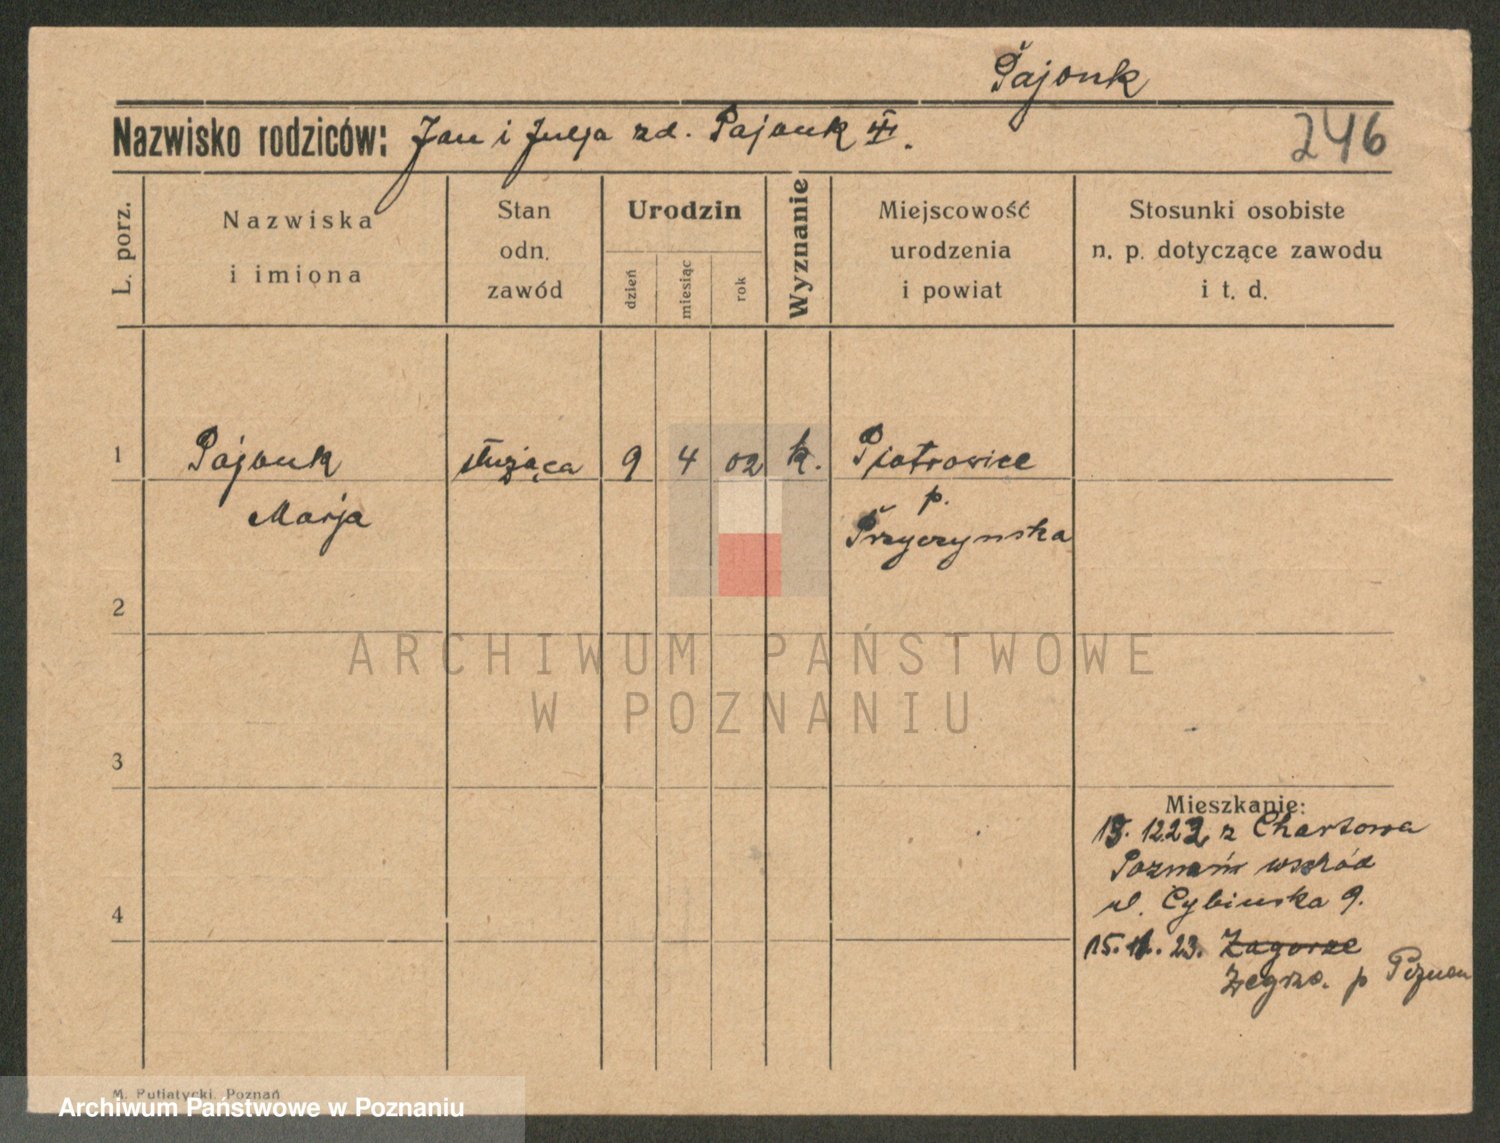 Pajonk
Nazwisko rodziców: Jan i Julja zd. Pajonk
246
L. porz.
Nazwiska
i imiona
Stan
odn.
zawód
Urodzin
dzień
miesiąc
rok
Wyznanie
Miejscowość
urodzenia
i powiat
Stosunki osobiste
n. p. dotyczące zawodu
i t. d.
1 Pajonk służąca 9 4 02 k. Piotrowice
Marja p.
Przyczynska
2
3
4
Mieszkanie:
15. 12 22 z Chartowa
Poznań wschód
ul. Cybinska 9.
15. 11. 23. Zagorze
Zegrze. p Poznan
M. Putiatycki, Poznań
ARCHIWUM PAŃSTWOWE
W POZNANIU
Archiwum Państwowe w Poznaniu